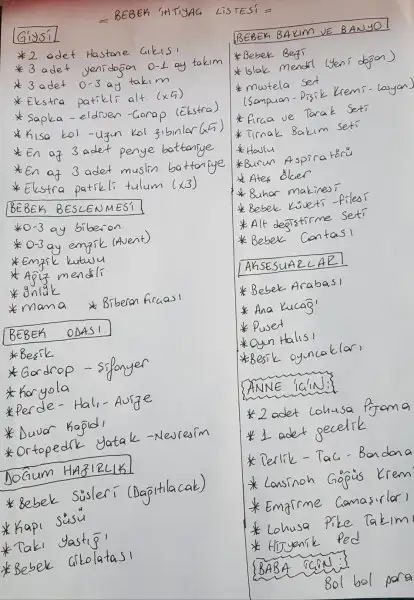 = BEBEK İHTİYAÇ LİSTESİ =
Giysi
* 2 adet Hastane Çıkışı
* 3 adet yenidoğan 0-1 ay takım
* 3 adet 0-3 ay takım
* Ekstra patikli alt (x5)
* Şapka - eldiven - Çorap (Ekstra)
* Kısa kol - uzun kol zıbınlar (x5)
* En az 3 adet penye battaniye
* En az 3 adet muslin battaniye
* Ekstra patikli tulum (x3)
BEBEK BESLENMESİ
* 0-3 ay biberon
* 0-3 ay emzik (Avent)
* Emzik kutusu
* Ağız mendili
* Önlük
* mama * Biberon fırçası
BEBEK ODASI
* Beşik
* Gardrop - Şifonyer
* Karyola
* Perde - Halı - Avize
* Duvar Kağıdı
* Ortopedik Yatak - Nevresim
DOĞUM HAZIRLIK
* Bebek Süsleri (Dağıtılacak)
* Kapı Süsü
* Takı Yastığı
* Bebek Çikolatası
BEBEK BAKIM VE BANYO
* Bebek Bezi
* Islak Mendil (Yeni doğan)
* mustela Set
(Şampuan - Pişik Kremi - Losyon)
* Fırça ve Tarak Seti
* Tırnak Bakım Seti
* Havlu
* Burun Aspiratörü
* Ateş Ölçer
* Buhar makinesi
* Bebek Küveti - Filesi
* Alt değiştirme Seti
* Bebek Çantası
AKSESUARLAR
* Bebek Arabası
* Ana Kucağı
* Puset
* Oyun Halısı
* Beşik oyuncakları
ANNE İÇİN:
* 2 adet Lohusa Pijama
* 1 adet gecelik
* Terlik - Taç - Bandana
* Lansinoh Göğüs Krem
* Emzirme Çamaşırları
* Lohusa Pike Takımı
* Hijyenik Ped
BABA İÇİN:
Bol bol para